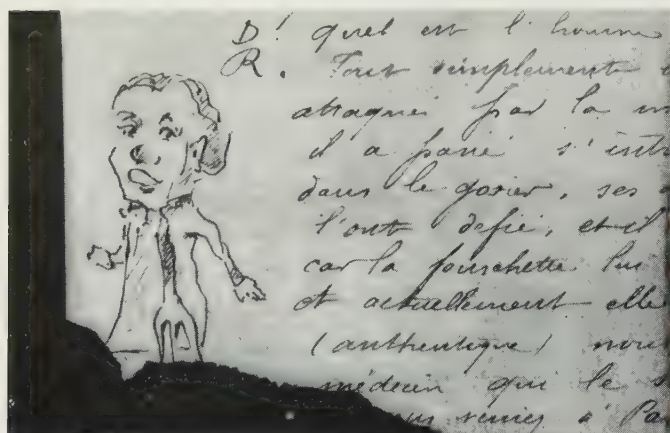 D! quel est l'homme
R. Tout simplement
attaqué par la
il a parié s'int
dans le gosier, ses
l'ont défié, et il
car la fourchette lui
et actuellement elle
(authentique) nou
médecin qui le s
venir à Pa